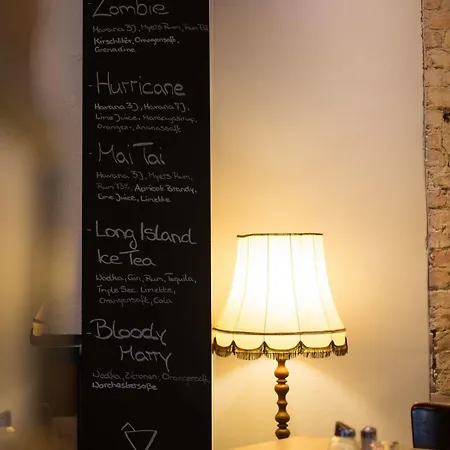 Zombie
Havana 3J, Myers Rum, Rum 73%
Kirschlikör, Orangensaft,
Grenadine
- Hurricane
Havana 3J, Havana 7J,
Lime Juice, Maracujasirup,
Orangen-, Ananassaft
- Mai Tai
Havana 3J, Myers Rum,
Rum 73%, Apricot Brandy,
Lime Juice, Limette
- Long Island
Ice Tea
Wodka, Gin, Rum, Tequila,
Triple Sec, Limette,
Orangensaft, Cola
- Bloody
Marry
Wodka, Zitronen-, Orangensaft
Worchestersoße